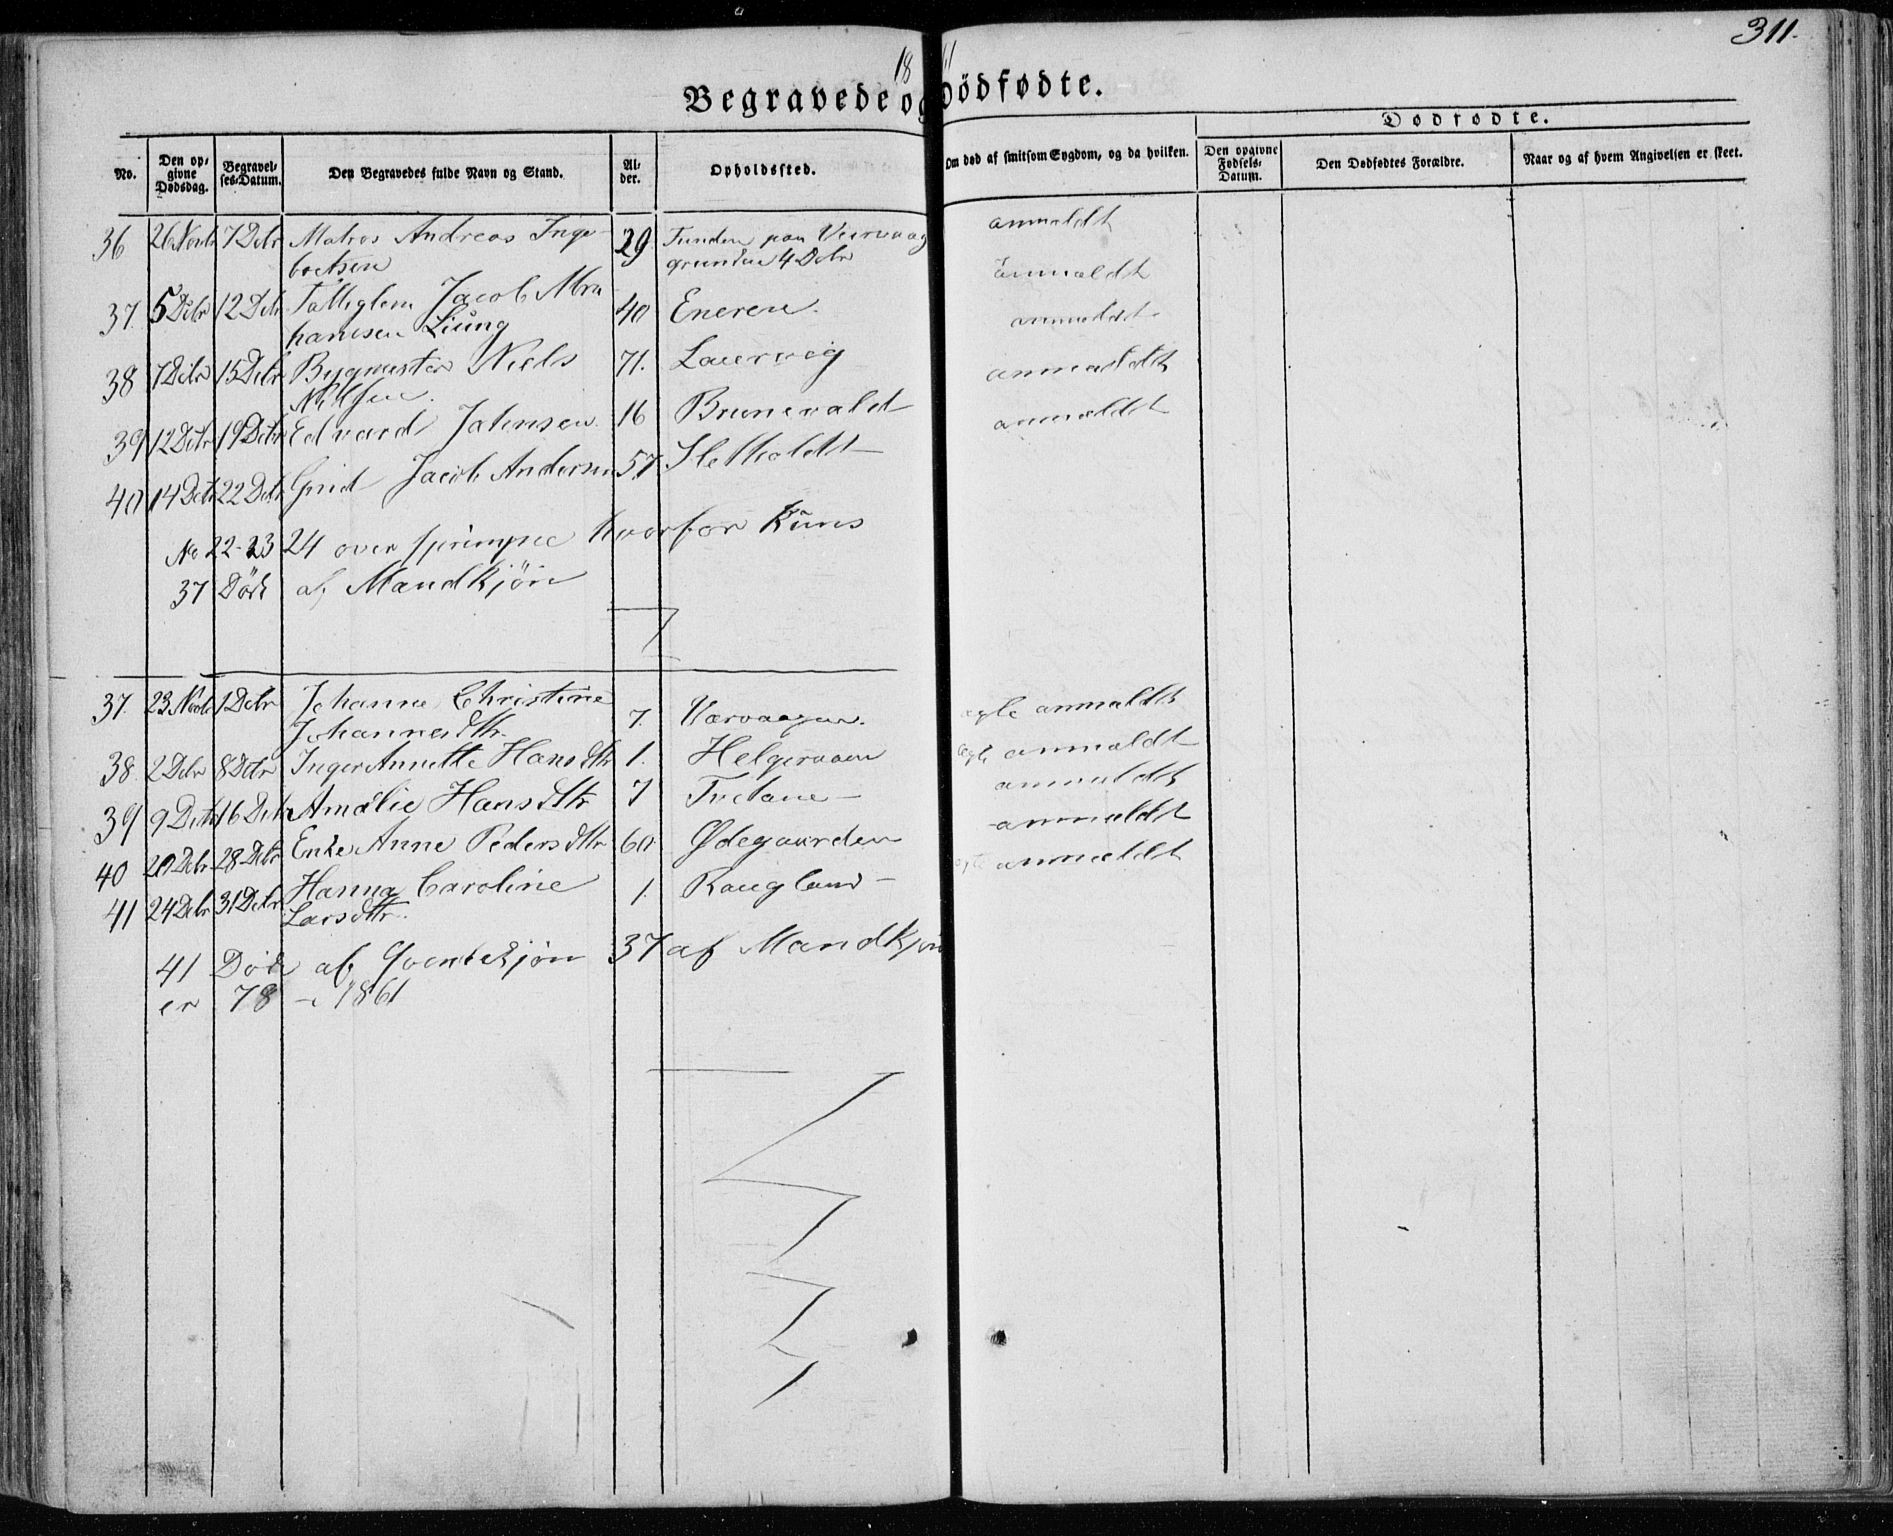 311.
18
Begravede og Dödfødte.
Dødfødte.
No.
Den op-
givne
Dødsdag.
Begravel-
ses-Datum.
Den Begravedes fulde Navn og Stand.
Al-
der.
Opholdssted.
Om død af smitsom Sygdom, og da hvilken.
Den opgivne
Fødsels-
Datum.
Den Dødfødtes Forældre.
Naar og af hvem Angivelsen er skeet.
36 26 Novbr 7 Debr Matros Andreas Inge- 29 Funden paa anmeldt
grunden 4 Debr
37. 5 Debr 12 Debr Jacob Abra 40 Eneren. anmeldt
hamsen Liung anmeldt
38 7 Debr 15 Debr Bygmester Niels 71. Laurvig anmeldt
Nielsen.
39 12 Debr 19 Debr Edvard Jahnsen. 16 Brunevald anmeldt
40 14 Debr 22 Debr Jacob Andersen 57 Sletholdt
No 22-23 24 over sprungne hvorfor Kuns
37 Döde af Mandkjön
37. 23 Novbr 1 Debr Johanne Christine
Johannesdtr. 7. Værvaagen. ægte anmeldt
38. 2 Debr 8 Debr Inger Annette Hansdtr 1. Helgeroaen ægte anmeldt
39 9 Debr 16 Debr Amalie Hansdtr 7 Tvetane anmeldt
40 20 Debr 28 Debr Enke Anne Pedersdtr 60 Ødegaarden anmeldt
41 24 Debr 31 Debr Hanna Caroline 1. Raugland ægte anmeldt
Larsdtr.
41 Döde af Qvindekjön 37 af Mandkjön
er 78 i 1861